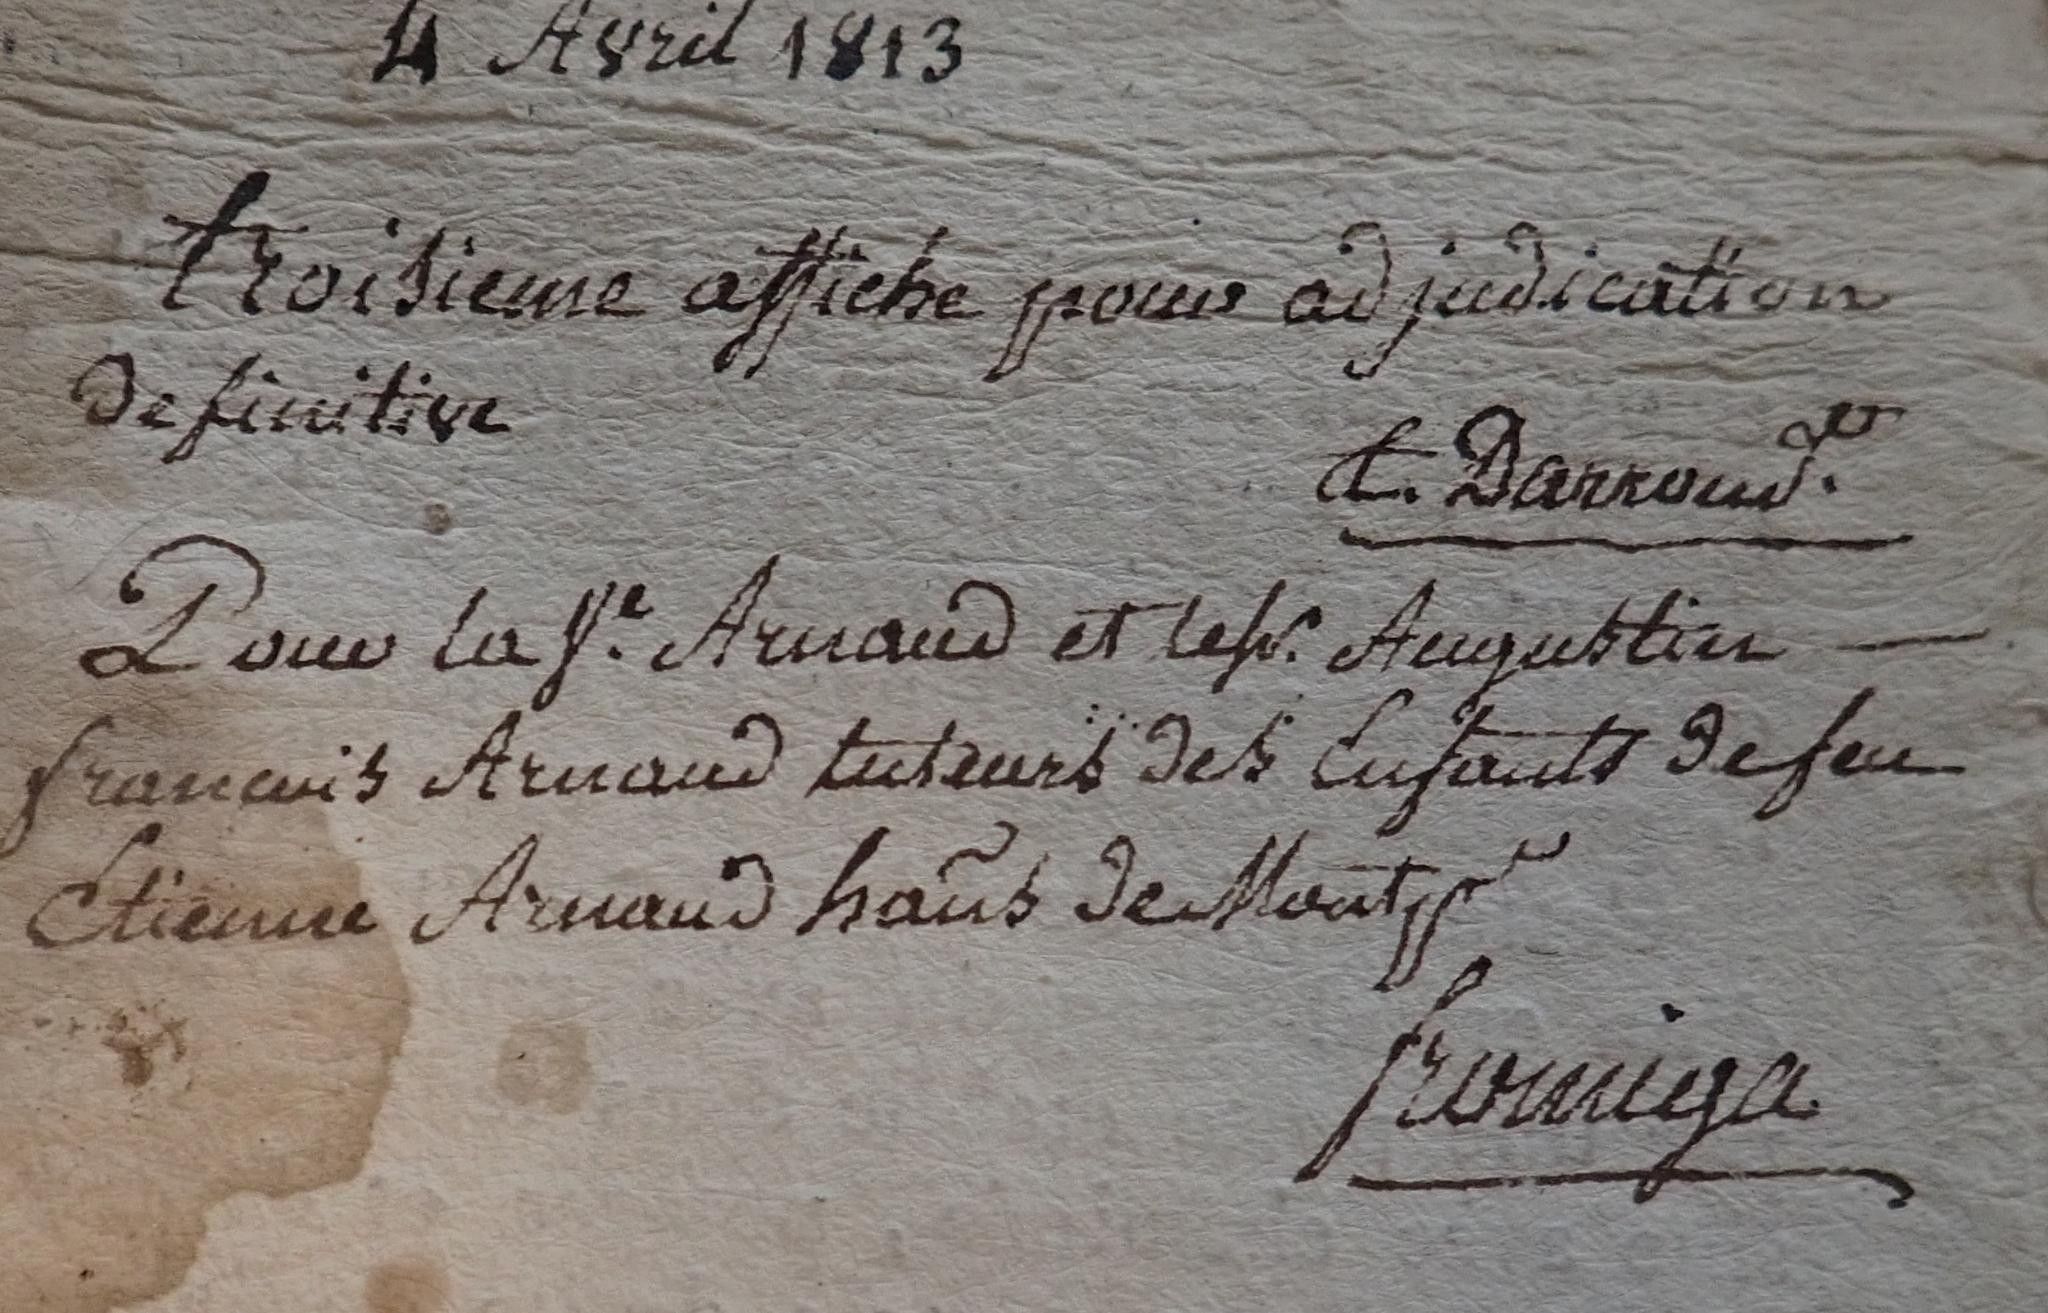 4 Avril 1813
troisieme affiche pour adjudication
definitive
Pour la Ve. Arnaud et le Sr. Augustin —
francois Arnaud tuteurs des Enfants de feu
Etienne Arnaud de Montpr